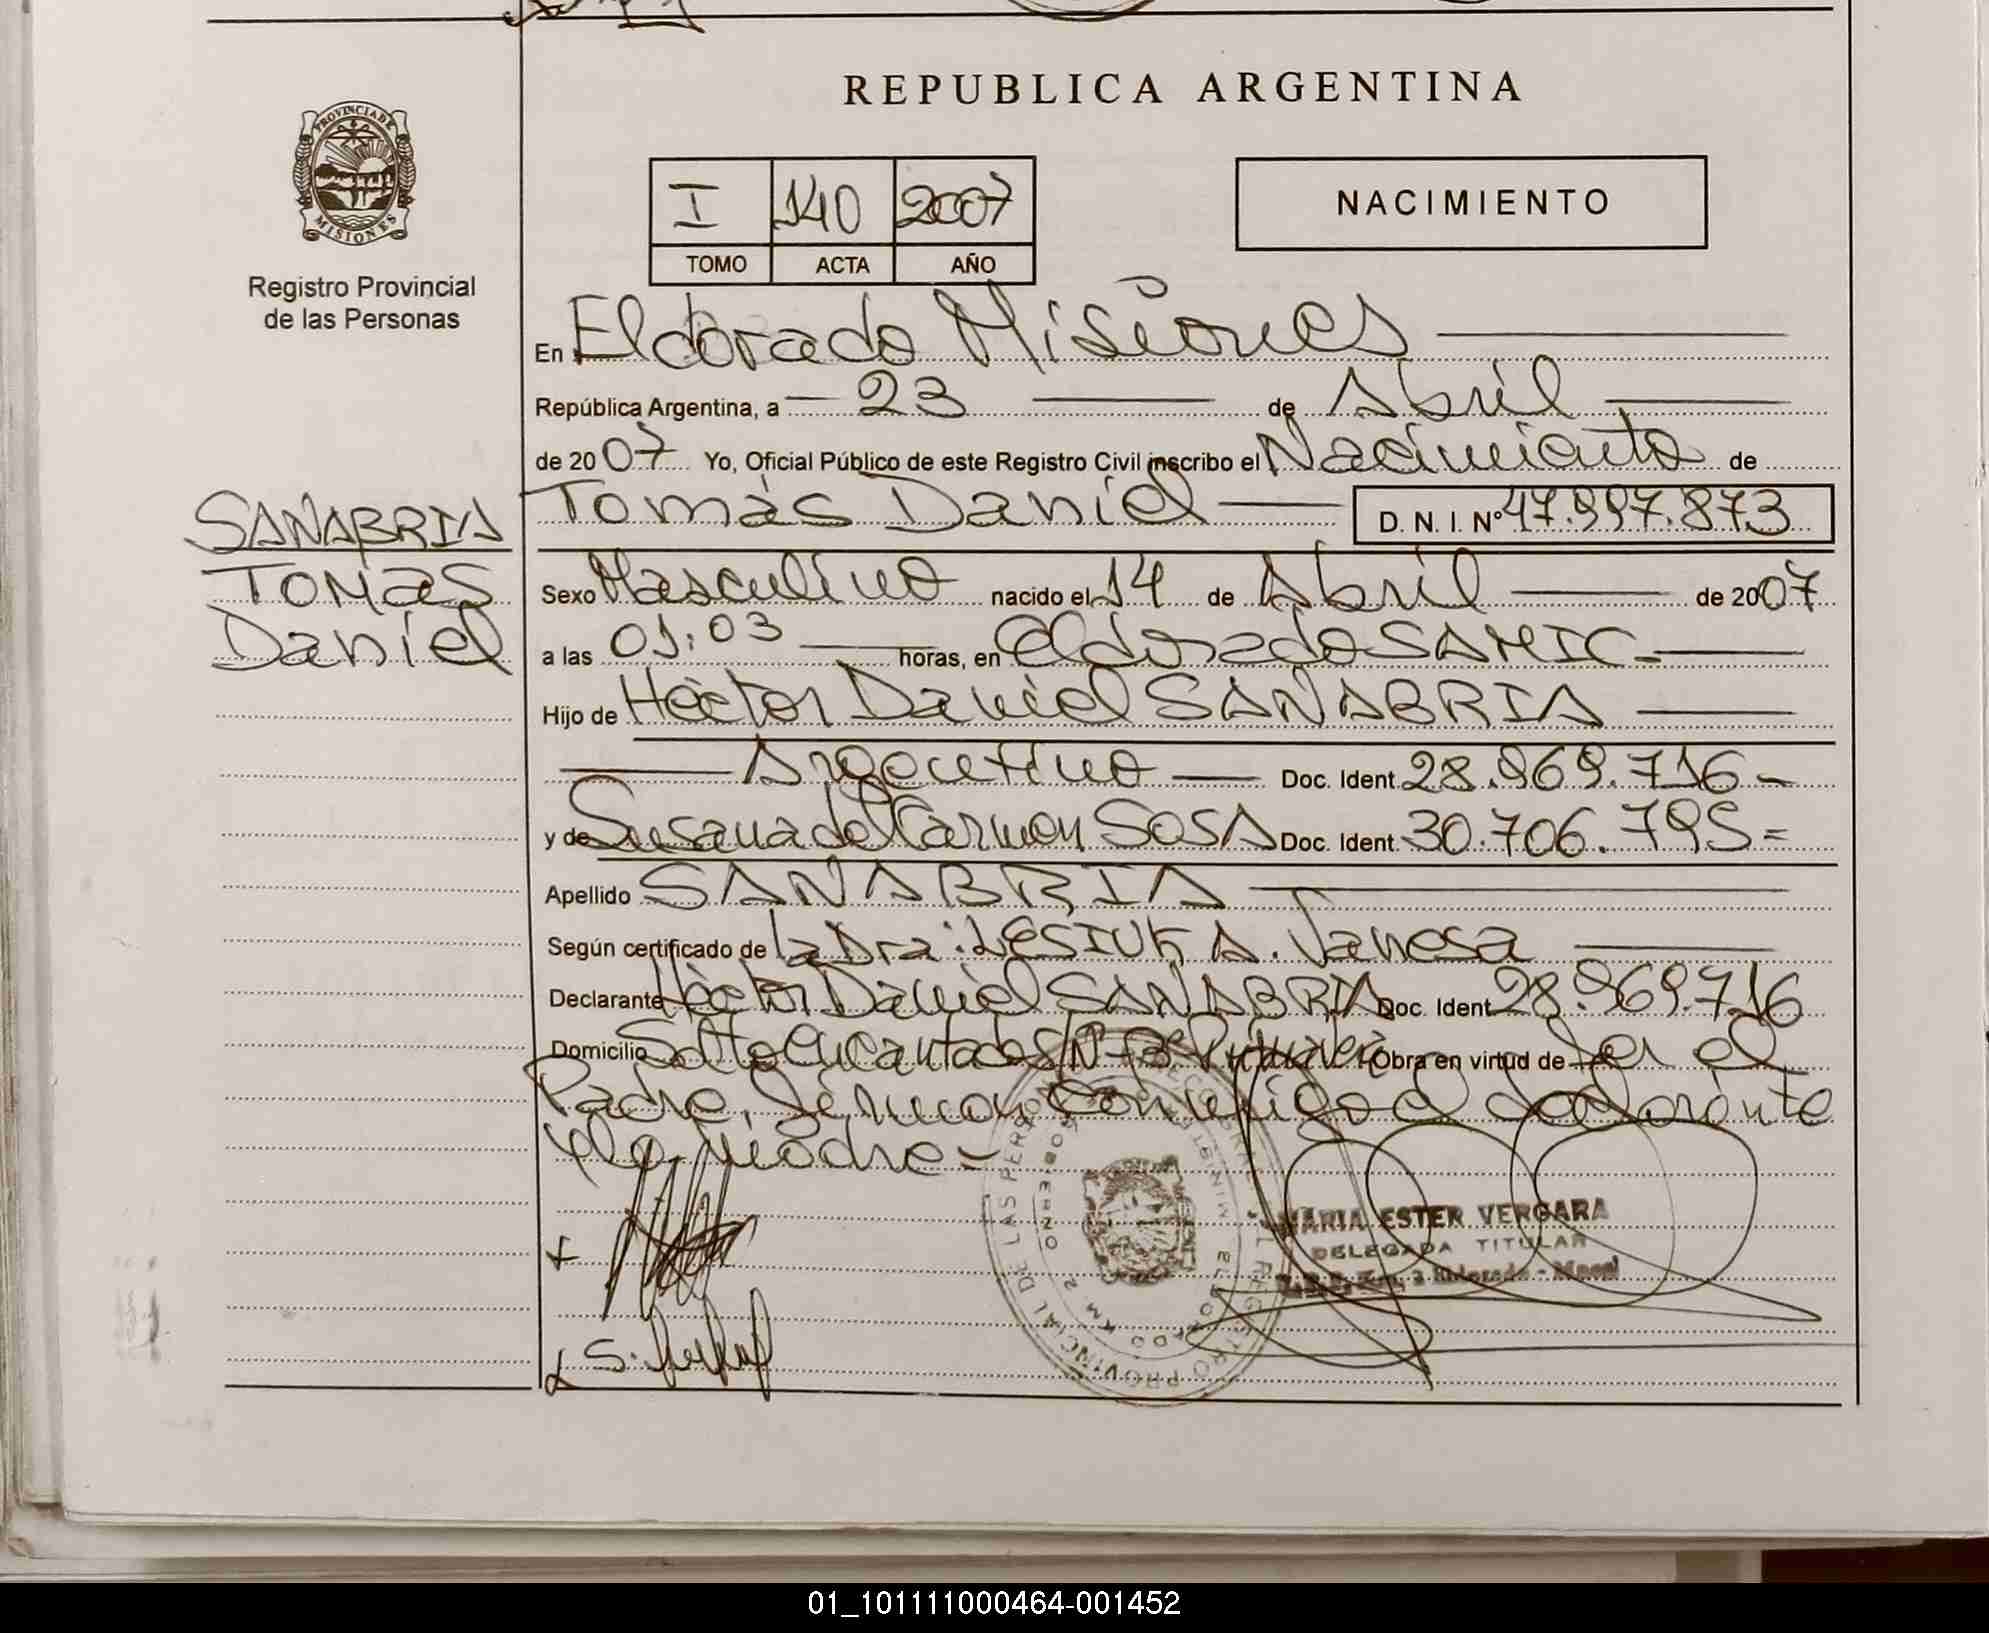 REPUBLICA ARGENTINA
PROVINCIA DE
MISIONES
Registro Provincial
de las Personas
I 140 2007
TOMO ACTA AÑO
NACIMIENTO
En Eldorado Misiones
República Argentina, a 23 de Abril
de 2007 Yo, Oficial Público de este Registro Civil inscribo el Nacimiento de
SANABRIA
Tomás Daniel
Tomás Daniel D. N. I. Nº 47.997.873
Sexo Masculino nacido el 14 de Abril de 2007
a las 01:03 horas, en Eldorado SAMIC
Hijo de Héctor Daniel SANABRIA
Argentino Doc. Ident. 28.969.716
y de Susana del Carmen SOSA Doc. Ident. 30.706.795
Apellido SANABRIA
Según certificado de la Dra: LESIUK A. Vanesa
Declarante Héctor Daniel SANABRIA Doc. Ident. 28.969.716
Domicilio Salto Encantado S/N Obra en virtud de ser el
Padre. Firman conmigo el declarante
y la madre
MARIA ESTER VERGARA
DELEGADA TITULAR
01_101111000464-001452